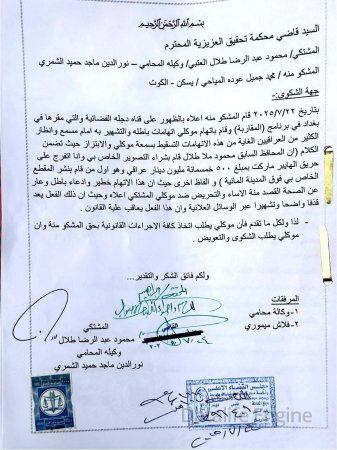 بِسْمِ اللهِ الرَّحْمَنِ الرَّحِيمِ
السيد قاضي محكمة تحقيق العزيزية المحترم
المشتكي/ محمود عبد الرضا طلال العتبي/ وكيله المحامي – نورالدين ماجد حميد الشمري
المشكو منه / محمد جميل عوده المياحي / يسكن - الكوت
جهة الشكوى:
بتاريخ ٢٠٢٥/٧/٢٢ قام المشكو منه اعلاه بالظهور على قناه دجله الفضائية والتي مقرها في
بغداد في برنامج (المقاربة) وقام باتهام موكلي اتهامات باطله والتشهير به امام مسمع وانظار
الكثير من العراقيين الغاية من هذه الاتهامات التسقيط بسمعة موكلي والابتزاز حيث تضمن
الكلام (ان المحافظ السابق محمود ملا طلال قام بشراء التصوير الخاص بي وانا اتفرج على
حريق الهايبر ماركت بمبلغ ٥٠٠ خمسمائة مليون دينار عراقي وهو اول من قام بنشر المقطع
الخاص بي فوق المدينة المائية ) والفاظ اخرى حيث ان هذا الاتهام خطير وادعاء باطل وعار
عن الصحة القصد منة الاساء والتحريض ضد موكلي المشتكي اعلاه وحيث ان ذلك الفعل يعد
قذفا واضحا وتشهيرا عبر الوسائل العلانية وان هذا الفعل يعاقب علية القانون.
- لذا ولكل ما تقدم فأن موكلي يطلب اتخاذ كافة الاجراءات القانونية بحق المشكو منة وان
موكلي يطلب الشكوى والتعويض .
ولكم فائق الشكر والتقدير...
المرفقات
١-وكالة محامي
٢-فلاش ميموري
المشتكي
محمود عبد الرضا طلال
وكيله المحامي
نورالدين ماجد حميد الشمري
القاضي
Engine